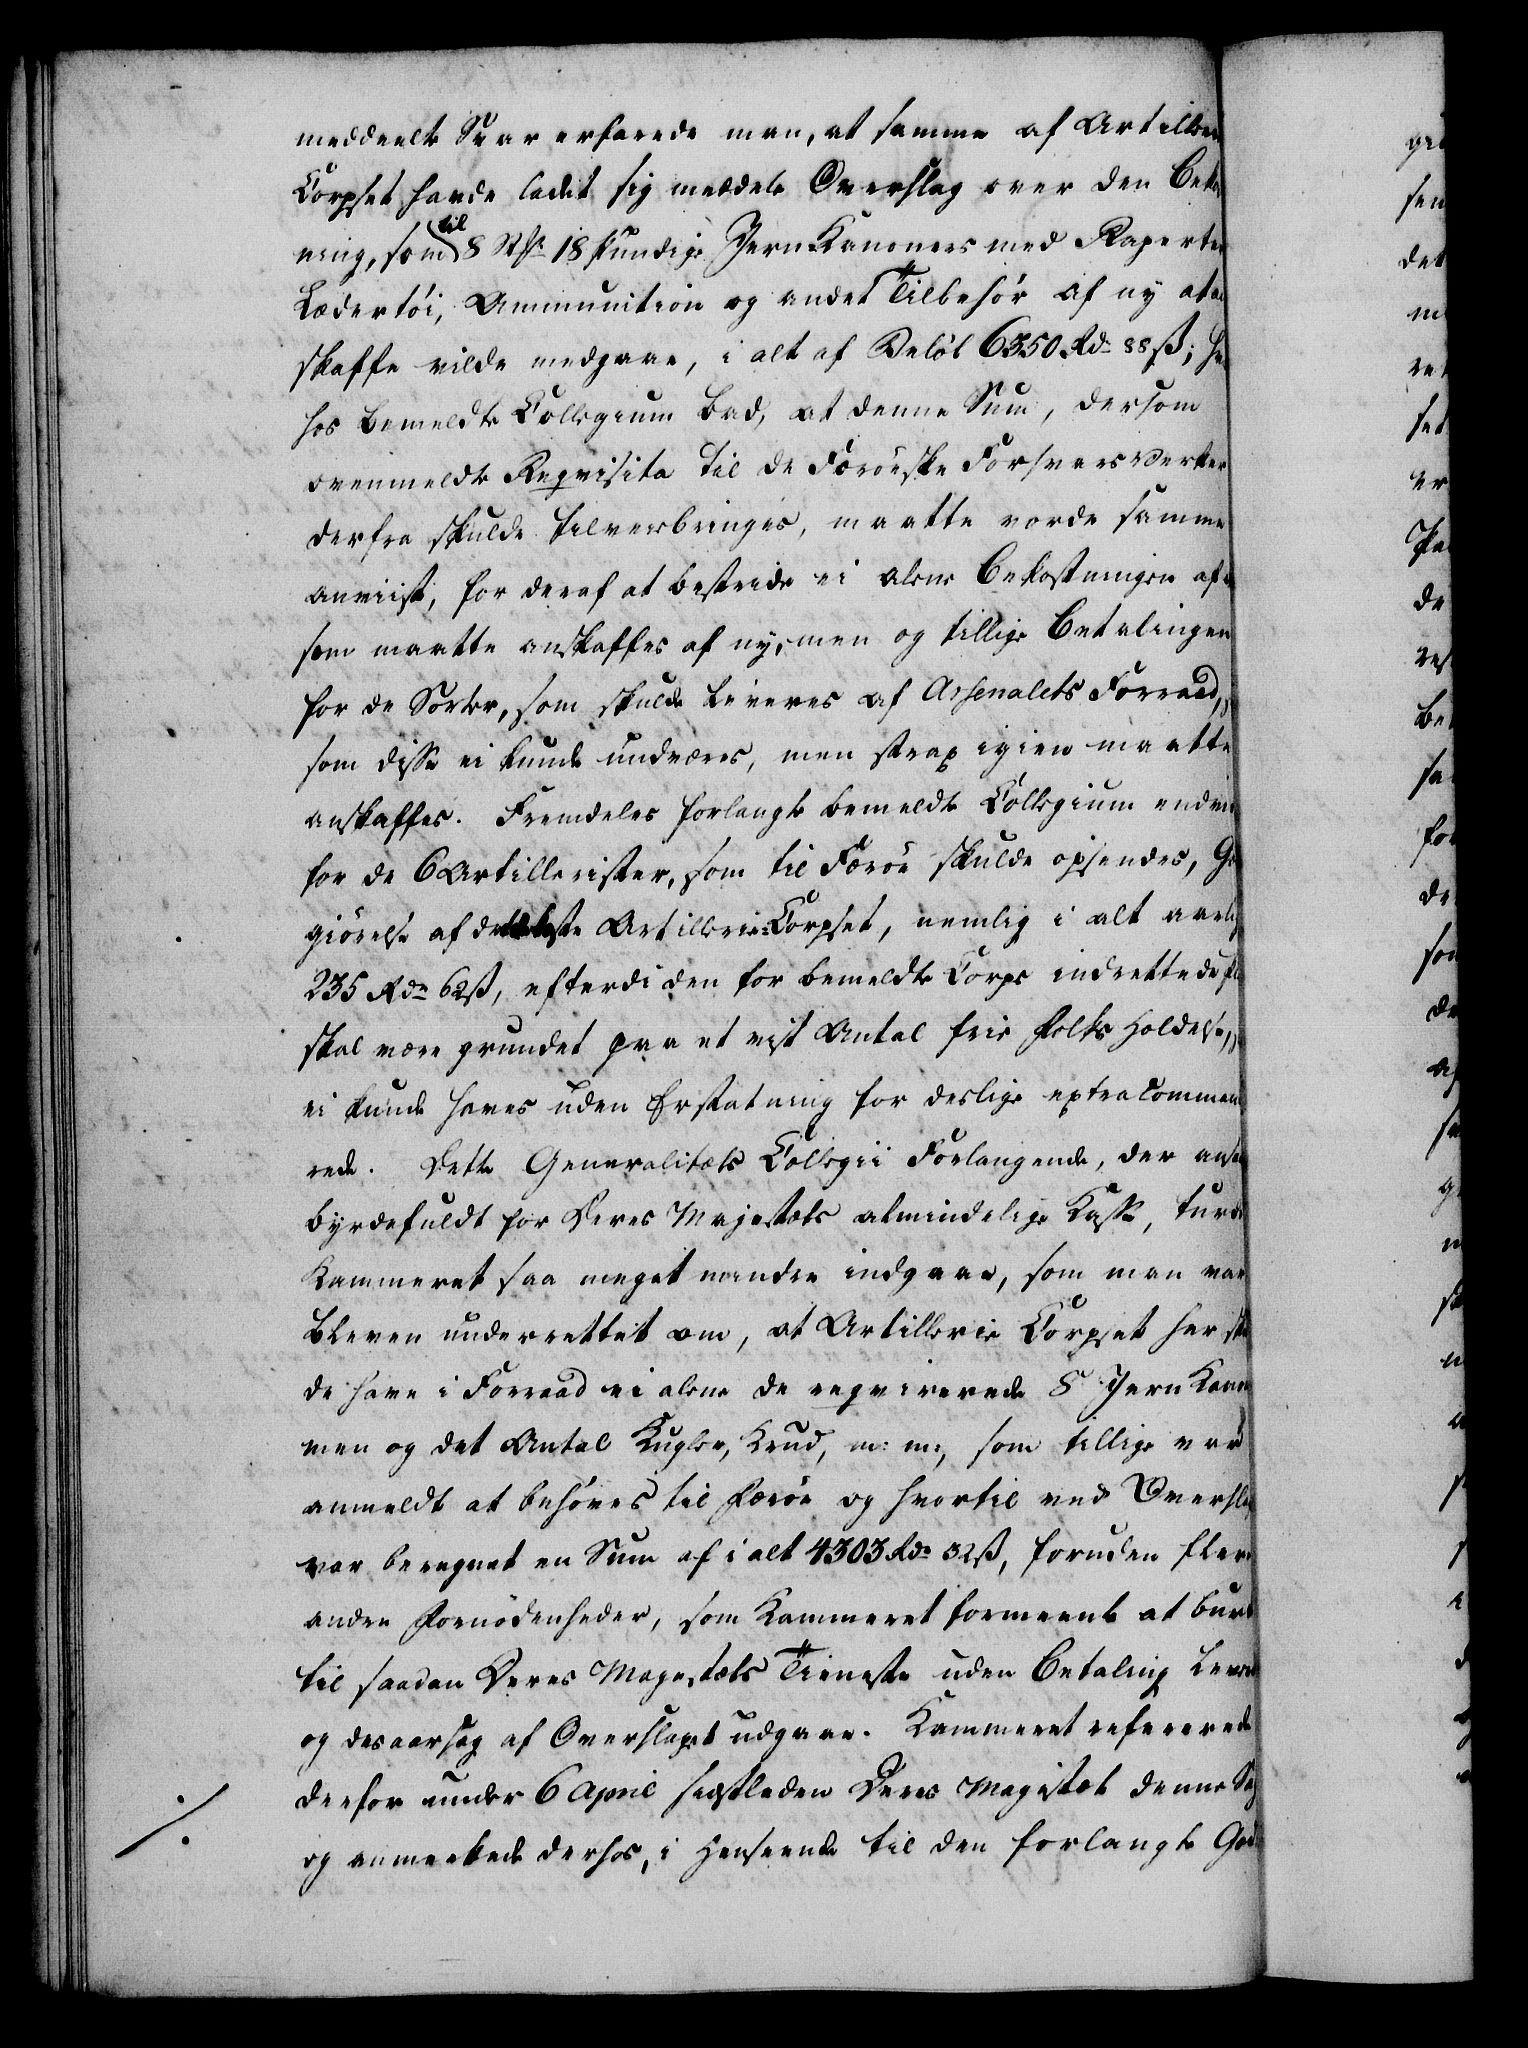 meddeelte Svar erfarede man, at samme af Artillerie
Corpset havde ladet sig meddele Overslag over den Beko
ning, som til 8 St. 18 pundige Jern Kanoners med Raperter
Lædertöi, Ammunition og andet Tilbehör af ny at an
skaffe vilde medgaae, i alt af Belöb 6350 Rd. 88 ß; hvor
hos bemeldte Collegium bad, at denne Sum, dersom
ovenmeldte Reqvisita til de Færöeske Forsvars Verker
derfra skulde tilveiebringes, maatte vorde samme
anviist, for deraf at bestride ei alene Bekostningen af
som maatte anskaffes af ny, men og tillige Betalingen
for de Sorter, som skulde leveres af Arsenalets Forraad,
som disse ei kunde undværes, men strax igien maatte
anskaffes. Fremdeles forlangte bemeldte Collegium endvi
for de 6 Artillerister, som til Færöe skulde opsendes, God
giörelse af dette Artillerie-Corpset, nemlig i alt aarlig
235 Rd. 62 ß, efterdi den for bemeldte Corps indrettede
skal være grundet paa et vist Antal frie Folks Holdelse,
ei kunde haves uden Erstatning for deslige extra comman
rede. Dette Generalitets Collegii Forlangende, der ansaa
byrdefuldt for Deres Majestæts almindelige Kasse, turde
Kammeret saa meget mindre indgaae, som man var
bleven underrettet om, at Artillerie Corpset her sku
de have i Forraad ei alene de reqvirerede 8 Jern Kano
men og det Antal Kugler, Krud, m: m:, som tillige var
anmeldt at behöves til Færöe og hvortil ved Overslag
var beregnet en Sum af i alt 4303 Rd. 32 ß, foruden flere
andre Fornödenheder, som Kammeret formeente at burde
til saadan Deres Majestæts Tieneste uden Betaling lever
og desaarsag af Overslaget udgaae. Kammeret refererede
derfor under 6 April sidstleden Deres Majestæt denne Sag
og anmerkede derhos, i Henseende til den forlangte God